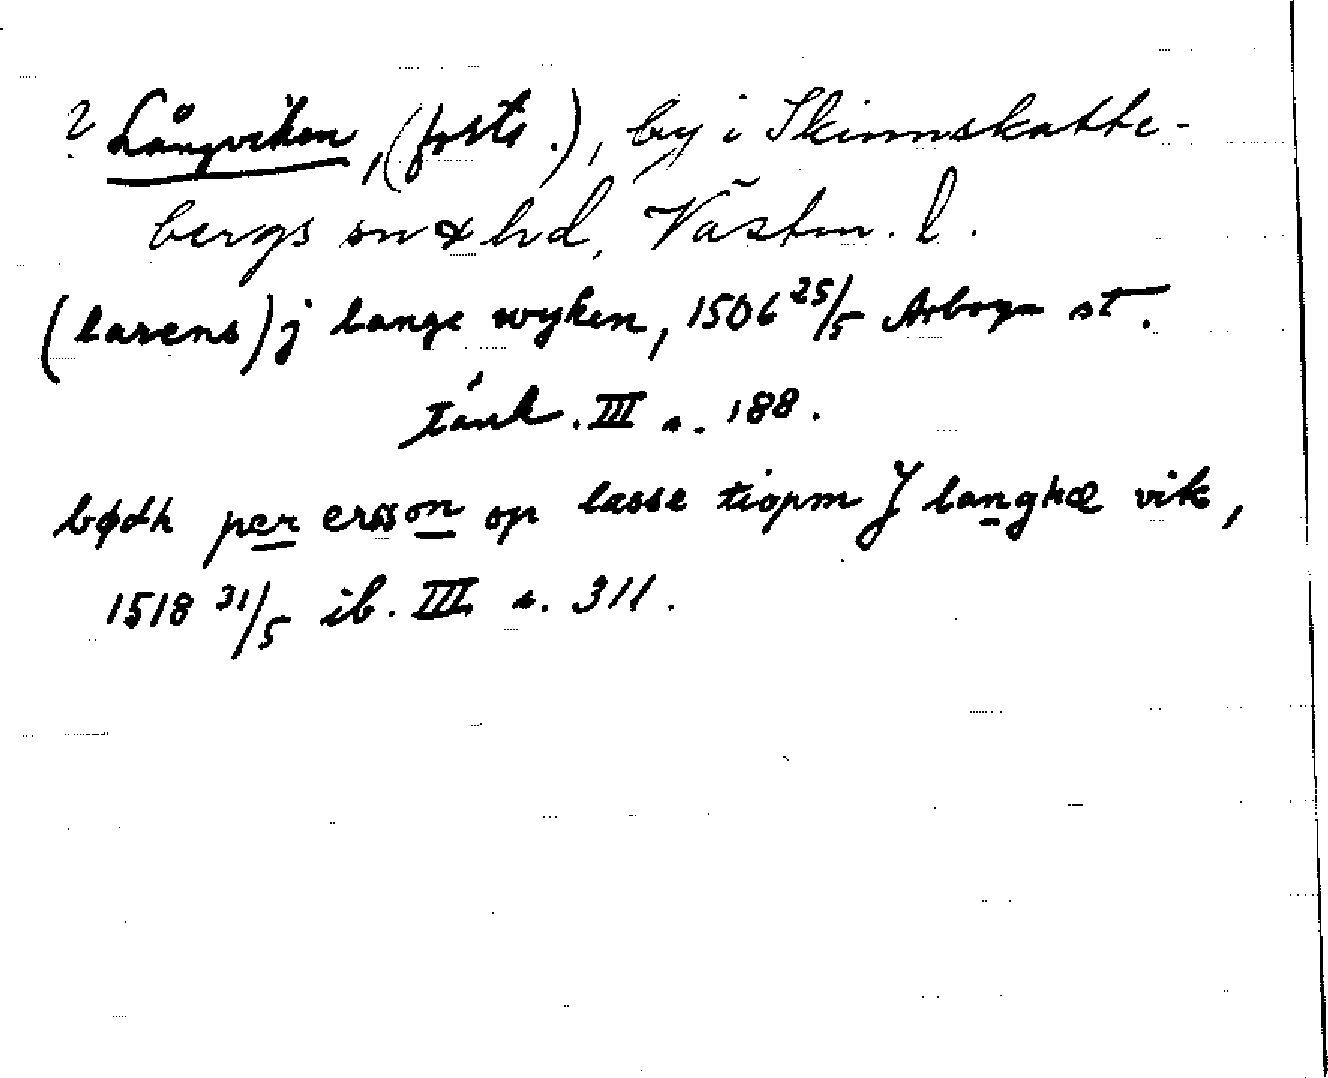 ? Långviken, (förste.), by i Skinnskatte-
bergs sn & hd, Västm. l.
(larens) j lange wyken, 1506 25/5 Arboga st.
tänk. III s. 188.
bødh per ersson op lasse tiopm J langhæ vik,
1518 31/5 ib. III s. 311.